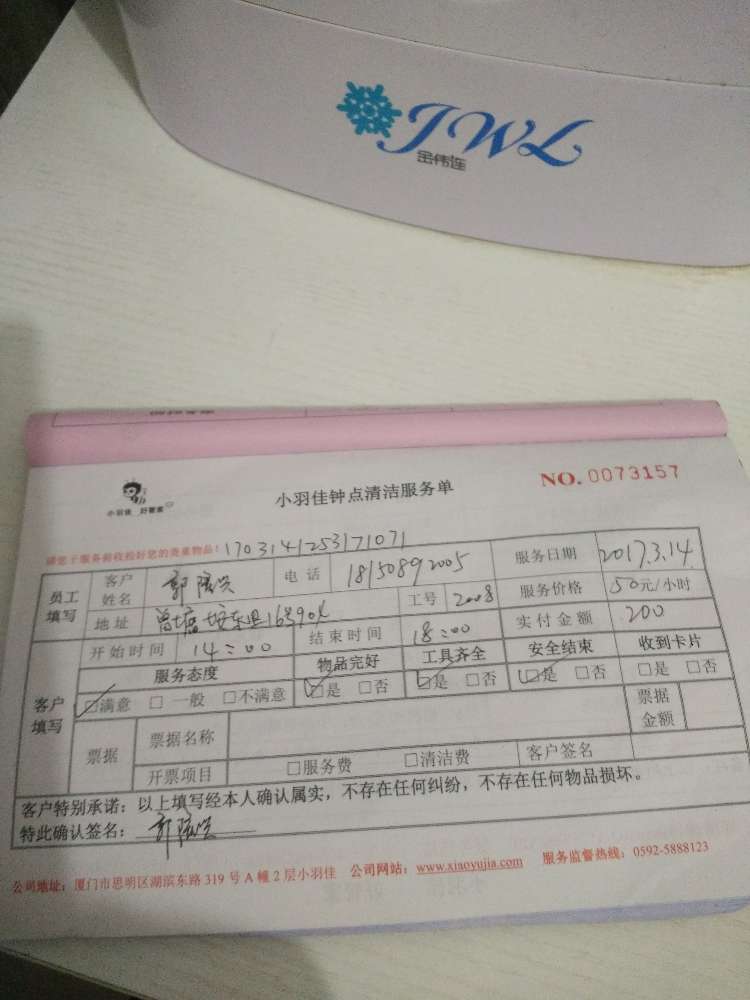 JWL
金伟连
小羽佳 好管家
小羽佳钟点清洁服务单
NO. 0073157
请您于服务前收检好您的贵重物品! 1703141253171071
员工填写 客户姓名 郭 电话 18150892005 服务日期 2017.3.14
地址 工号 2008 服务价格 50元/小时
客户填写 开始时间 14:00 结束时间 18:00 实付金额 200
服务态度 物品完好 工具齐全 安全结束 收到卡片
☑满意 □ 一般 □不满意 ☑是 □否 ☑是 □否 ☑是 □否 □是 □否
票据 票据名称 票据金额
开票项目 □服务费 □清洁费 客户签名
客户特别承诺：以上填写经本人确认属实，不存在任何纠纷，不存在任何物品损坏。
特此确认签名： 郭
公司地址：厦门市思明区湖滨东路 319 号 A 幢 2 层小羽佳 公司网站：www.xiaoyujia.com 服务监督热线：0592-5888123